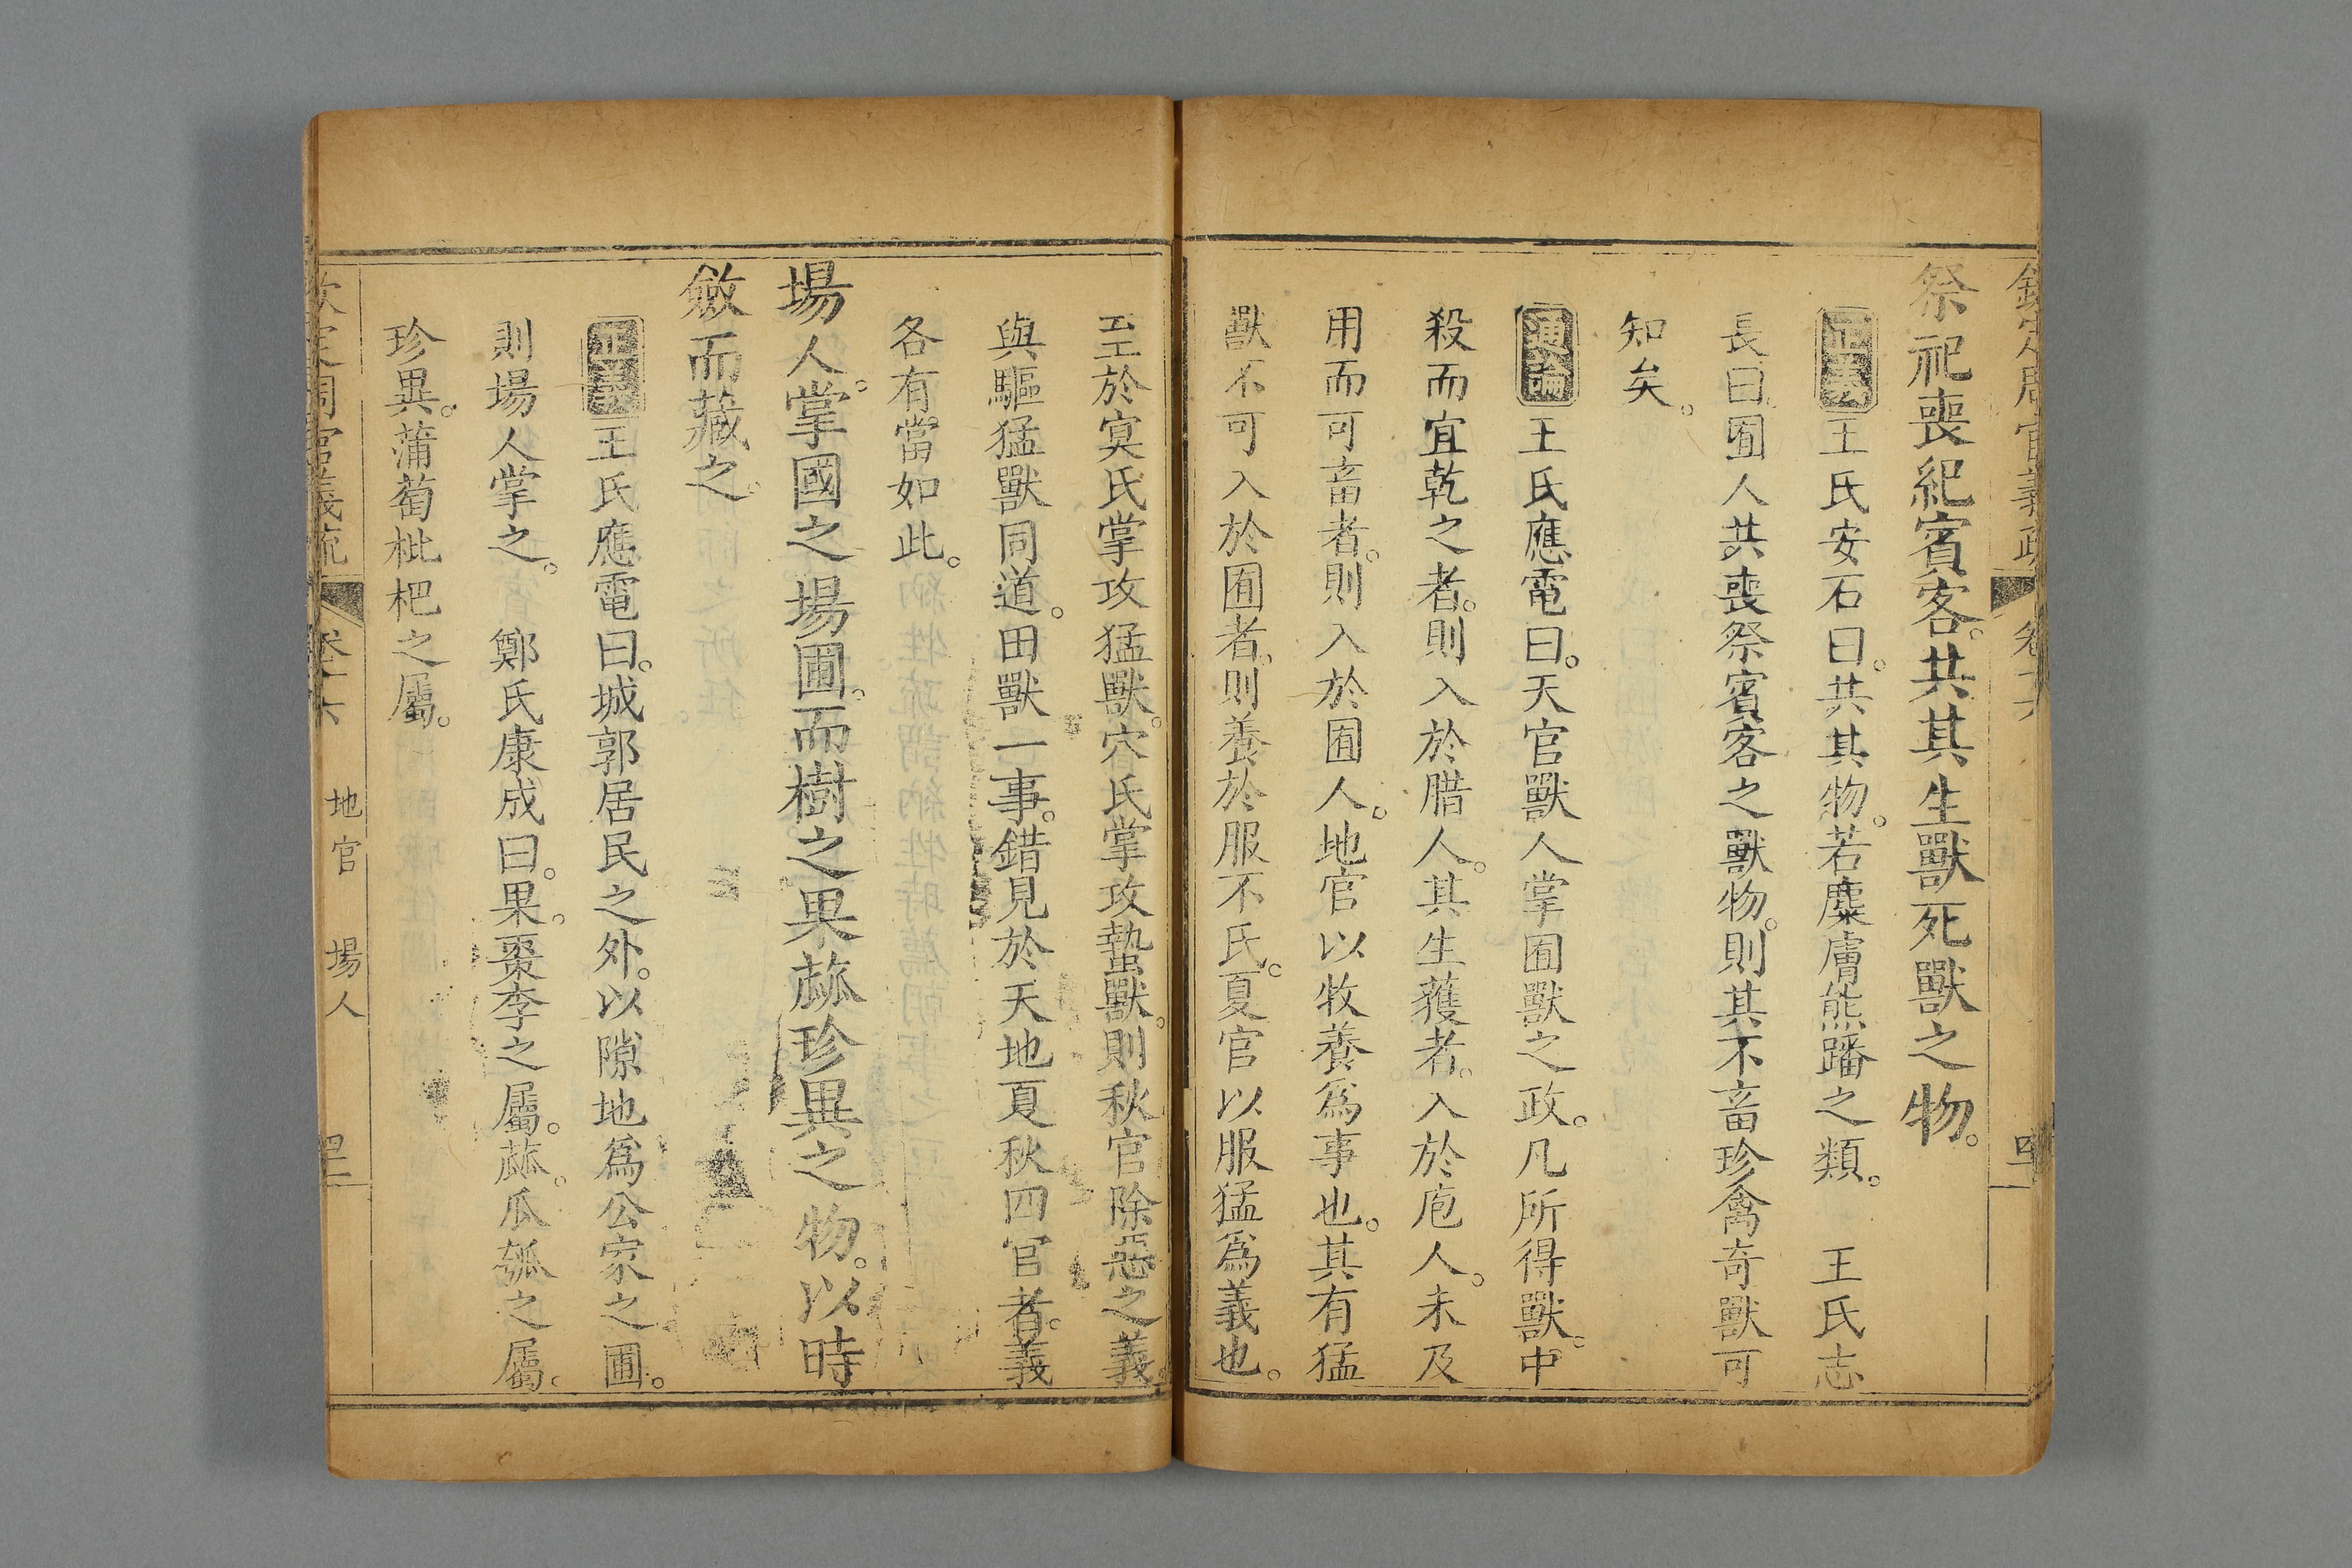 欽定周官義疏 卷十六
祭祀喪紀賓客。共其生獸死獸之物。
正義王氏安石曰。共其物。若麋膚熊蹯之類。 王氏志
長曰。囿人共喪祭賓客之獸物。則其不畜珍禽奇獸可
知矣。
通論王氏應電曰。天官獸人掌囿獸之政。凡所得獸。中
殺而宜乾之者。則入於腊人。其生獲者。入於庖人。未及
用而可畜者。則入於囿人。地官以牧養爲事也。其有猛
獸不可入於囿者。則養於服不氏。夏官以服猛爲義也。
至於冥氏掌攻猛獸。穴氏掌攻蟄獸。則秋官除惡之義。
與驅猛獸同道。田獸一事。錯見於天地夏秋四官者。義
各有當如此。
場人。掌國之場圃。而樹之果蓏珍異之物。以時
斂而藏之。
正義王氏應電曰。城郭居民之外。以隙地爲公家之圃。
則場人掌之。 鄭氏康成曰。果。棗李之屬。蓏。瓜瓠之屬。
珍異。蒲萄枇杷之屬。
欽定周官義疏 卷十六 地官 場人